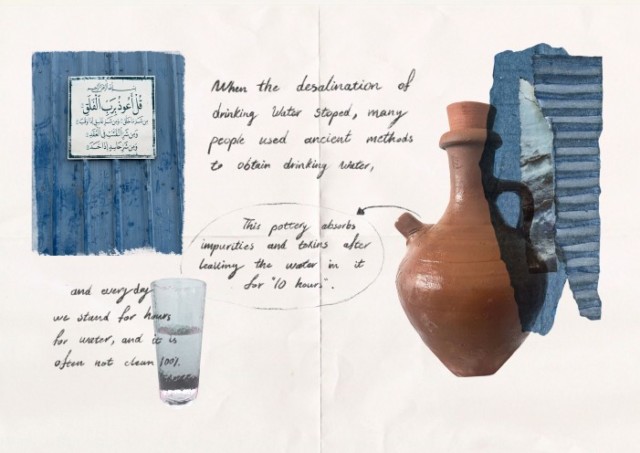 بسم الله الرحمن الرحيم
قُلْ أَعُوذُ بِرَبِّ الْفَلَقِ
مِن شَرِّ مَا خَلَقَ وَمِن شَرِّ غَاسِقٍ إِذَا وَقَبَ
وَمِن شَرِّ النَّفَّاثَاتِ فِي الْعُقَدِ
وَمِن شَرِّ حَاسِدٍ إِذَا حَسَدَ
When the desalination of
drinking water stoped, many
people used ancient methods
to obtain drinking water,
This pottery absorbs
impurities and toxins after
leaving the water in it
for "10 hours".
and everyday
we stand for hours
for water, and it is
often not clean 100%.